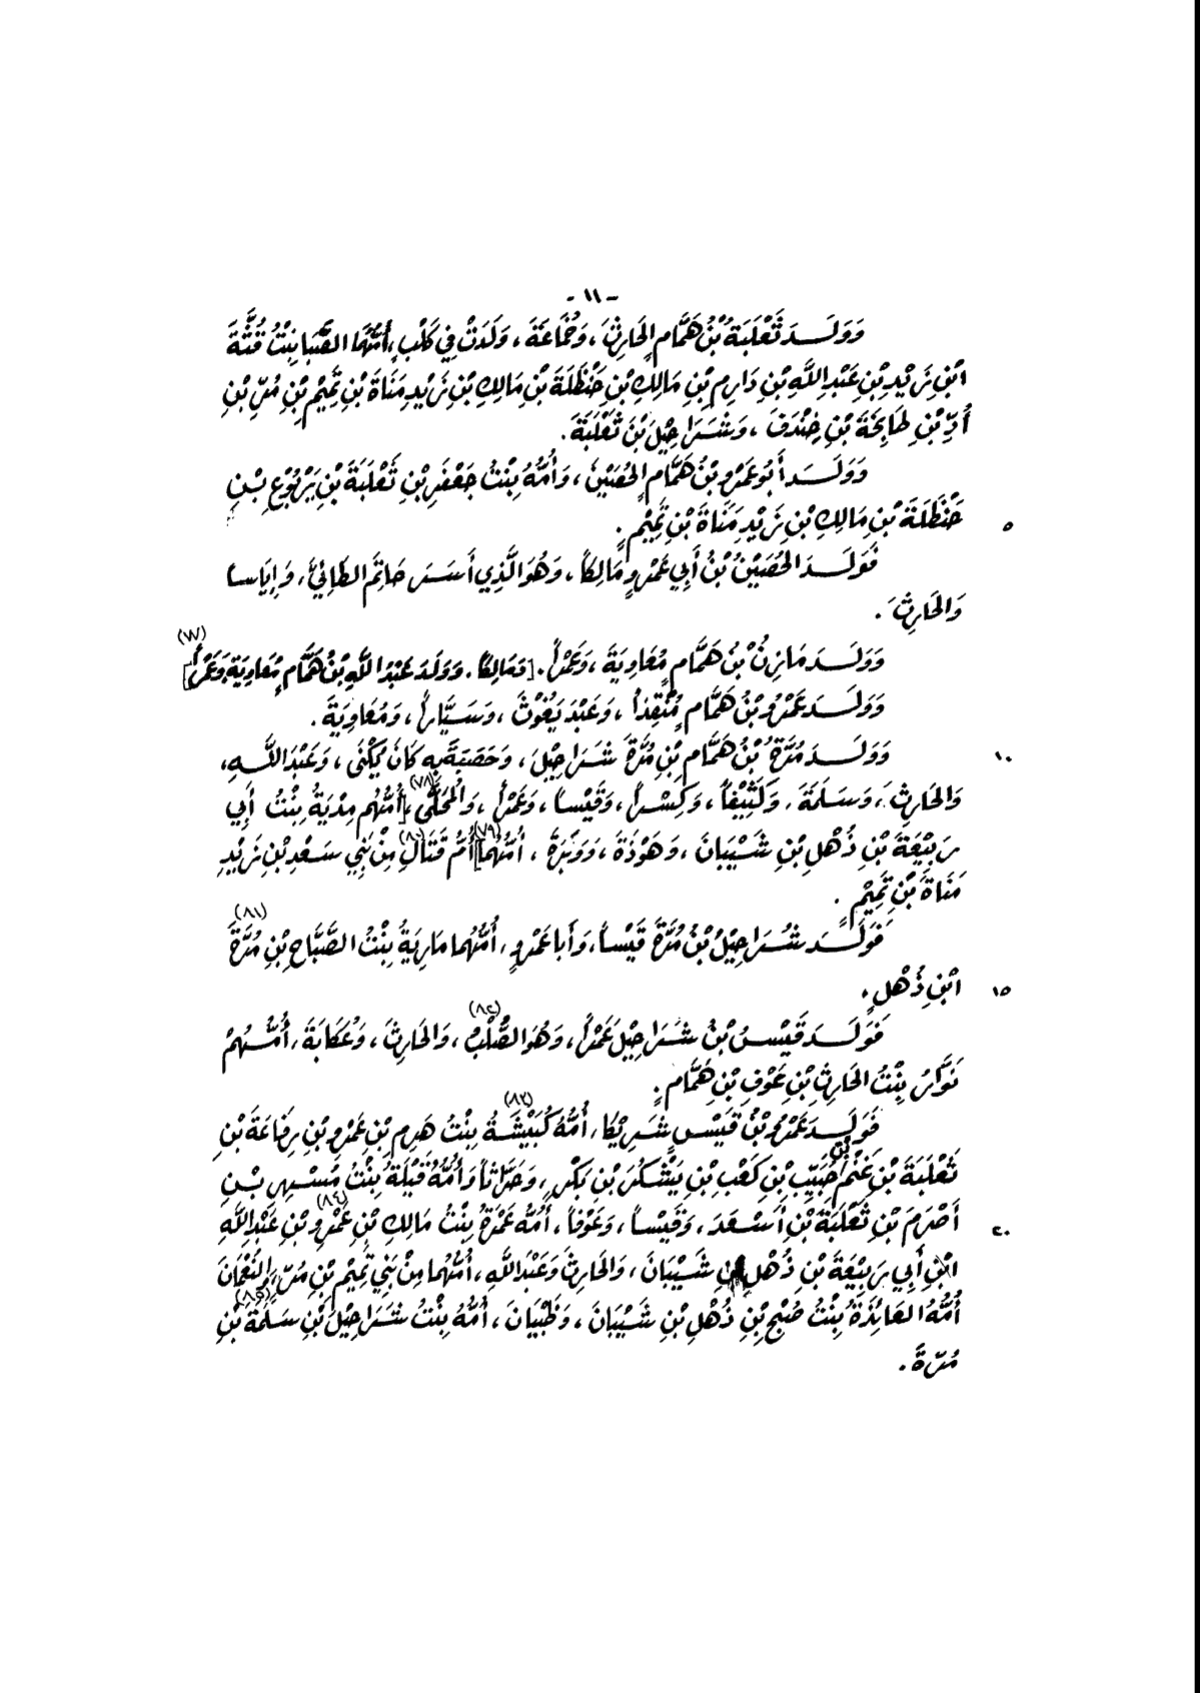 - ١١ -
وَوَلَـــدَ ثَعْلَبَةُ بْنُ هَمَّامٍ الحَارِثَ، وَخُمَاعَةَ، وَلَدَتْ في كَلْبٍ، أُمُّهُمَا الصَّبَا بِنْتُ قُنَّةَ
ابْنِ زَيْدِ بْنِ عَبْدِ اللَّهِ بْنِ دَارِمِ بْنِ مَالِكِ بْنِ حَنْظَلَةَ بْنِ مَالِكِ بْنِ زَيْدِ مَنَاةَ بْنِ تَمِيْمِ بْنِ مُرِّ بْنِ
أُدِّ بْنِ طَابِخَةَ بْنِ خِنْدَفَ، وَشَرَاحِيْلَ بْنَ ثَعْلَبَةَ.
وَوَلَـــدَ أَبُو عَمْرِو بْنُ هَمَّامٍ الحُصَيْنَ، وَأُمُّهُ بِنْتُ جَعْفَرِ بْنِ ثَعْلَبَةَ بْنِ يَرْبُوْعِ بْـنِ
حَنْظَلَةَ بْنِ مَالِكِ بْنِ زَيْدِ مَنَاةَ بْنِ تَمِيْمٍ. ٥
فَوَلَـــدَ الحُصَيْنُ بْنُ أَبِي عَمْرٍو مَالِكاً، وَهُوَ الَّذِي أَسَـرَ حَاتِمَ الطَائِيَّ، وَإِيَاساً
وَالحَارِثَ.
وَوَلَـــدَ مَازِنُ بْنُ هَمَّامٍ مُعَاوِيَةَ، وَعَمْراً. [وَمَالِكاً. وَوَلَدَ عَبْدُ اللَّهِ بْنُ هَمَّامٍ مُعَاوِيَةَ وَعَمْراً] (٧٧)
وَوَلَـــدَ عَمْرُو بْنُ هَمَّامٍ مُنْقِذاً، وَعَبْدَ يَغُوْثَ، وَسَيَّاراً، وَمُعَاوِيَةَ.
وَوَلَـــدَ مُرَّةُ بْنُ هَمَّامِ بْنِ مُرَّةَ شَرَاحِيْلَ، وَحَصَبَةَ بِهِ كَانَ يُكْنَى، وَعَبْدَ اللَّـــهِ، ١٠
وَالحَارِثَ، وَسَـلَمَةَ، وَلَتِيْفاً، وَكِسْـراً، وَقَيْساً، وَعَمْراً، وَالمُحَلَّى (٧٨)، [أُمُّهُم مِدْيَةُ بِنْتُ أَبِي
رَبِيْعَةَ بْنِ ذُهْلِ بْنِ شَيْبَانَ، وَهَوْذَةَ، وَوَبَرَةَ، أُمُّهُمَا] (٧٩) أُمُّ قَتَالٍ (٨٠) مِنْ بَنِي سَعْدِ بْنِ زَيْدِ
مَنَاةَ بْنِ تَمِيْمٍ.
فَوَلَـــدَ شُرَاحِيْلُ بْنُ مُرَّةَ قَيْساً، وَأَبَا عَمْرٍو، أُمُّهُما مَارِيَةُ بِنْتُ الصَّبَّاحِ (٨١) بْنِ مُرَّةَ
ابْنِ ذُهْلٍ. ١٥
فَوَلَـــدَ قَيْسُ بْنُ شَرَاحِيْلَ عَمْراً، وَهُوَ الصُّلْبُ (٨٢)، وَالحَارِثَ، وَعُكَابَةَ، أُمُّـهُمْ
نَوَّارُ بِنْتُ الحَارِثِ بْنِ عَوْفِ بْنِ هَمَّامٍ.
فَوَلَـــدَ عَمْرُو بْنُ قَيْسٍ شَرِيْكاً، أُمُّهُ كُبَيْشَـةُ (٨٣) بِنْتُ هَرِمِ بْنِ عَمْرِو بْنِ رِفَاعَةَ بْنِ
ثَعْلَبَةَ بْنِ غَنْمِ بْنِ حُبَيِّبِ بْنِ كَعْبِ بْنِ يَشْكُرَ بْنِ بَكْرٍ، وَحَرَّاثاً وَأُمُّهُ قَيْلَةُ بِنْتُ مُسْهِرِ بْـنِ
أَصْرَمَ بْنِ ثَعْلَبَةَ بْنِ أَسْعَدَ، وَقَيْساً، وَعَوْفاً، أُمُّهُ عَمْرَةُ بِنْتُ مَالِكِ بْنِ عَمْرِو (٨٤) بْنِ عَبْدِ اللَّهِ ٢٠
ابْنِ أَبِي رَبِيْعَةَ بْنِ ذُهْلِ بْنِ شَيْبَانَ، وَالحَارِثَ وَعَبْدَ اللَّهِ، أُمُّهُما مِنْ بَنِي تَمِيْمِ بْنِ مُرٍّ، وَالنُّعْمَانَ
أُمُّهُ العَائِذَةُ بِنْتُ صُبْحِ بْنِ ذُهْلِ بْنِ شَيْبَانَ، وَظَبْيَانَ، أُمُّهُ بِنْتُ شَرَاحِيْلَ بْنِ سَلَمَةَ (٨٥) بْنِ
مُرَّةَ.